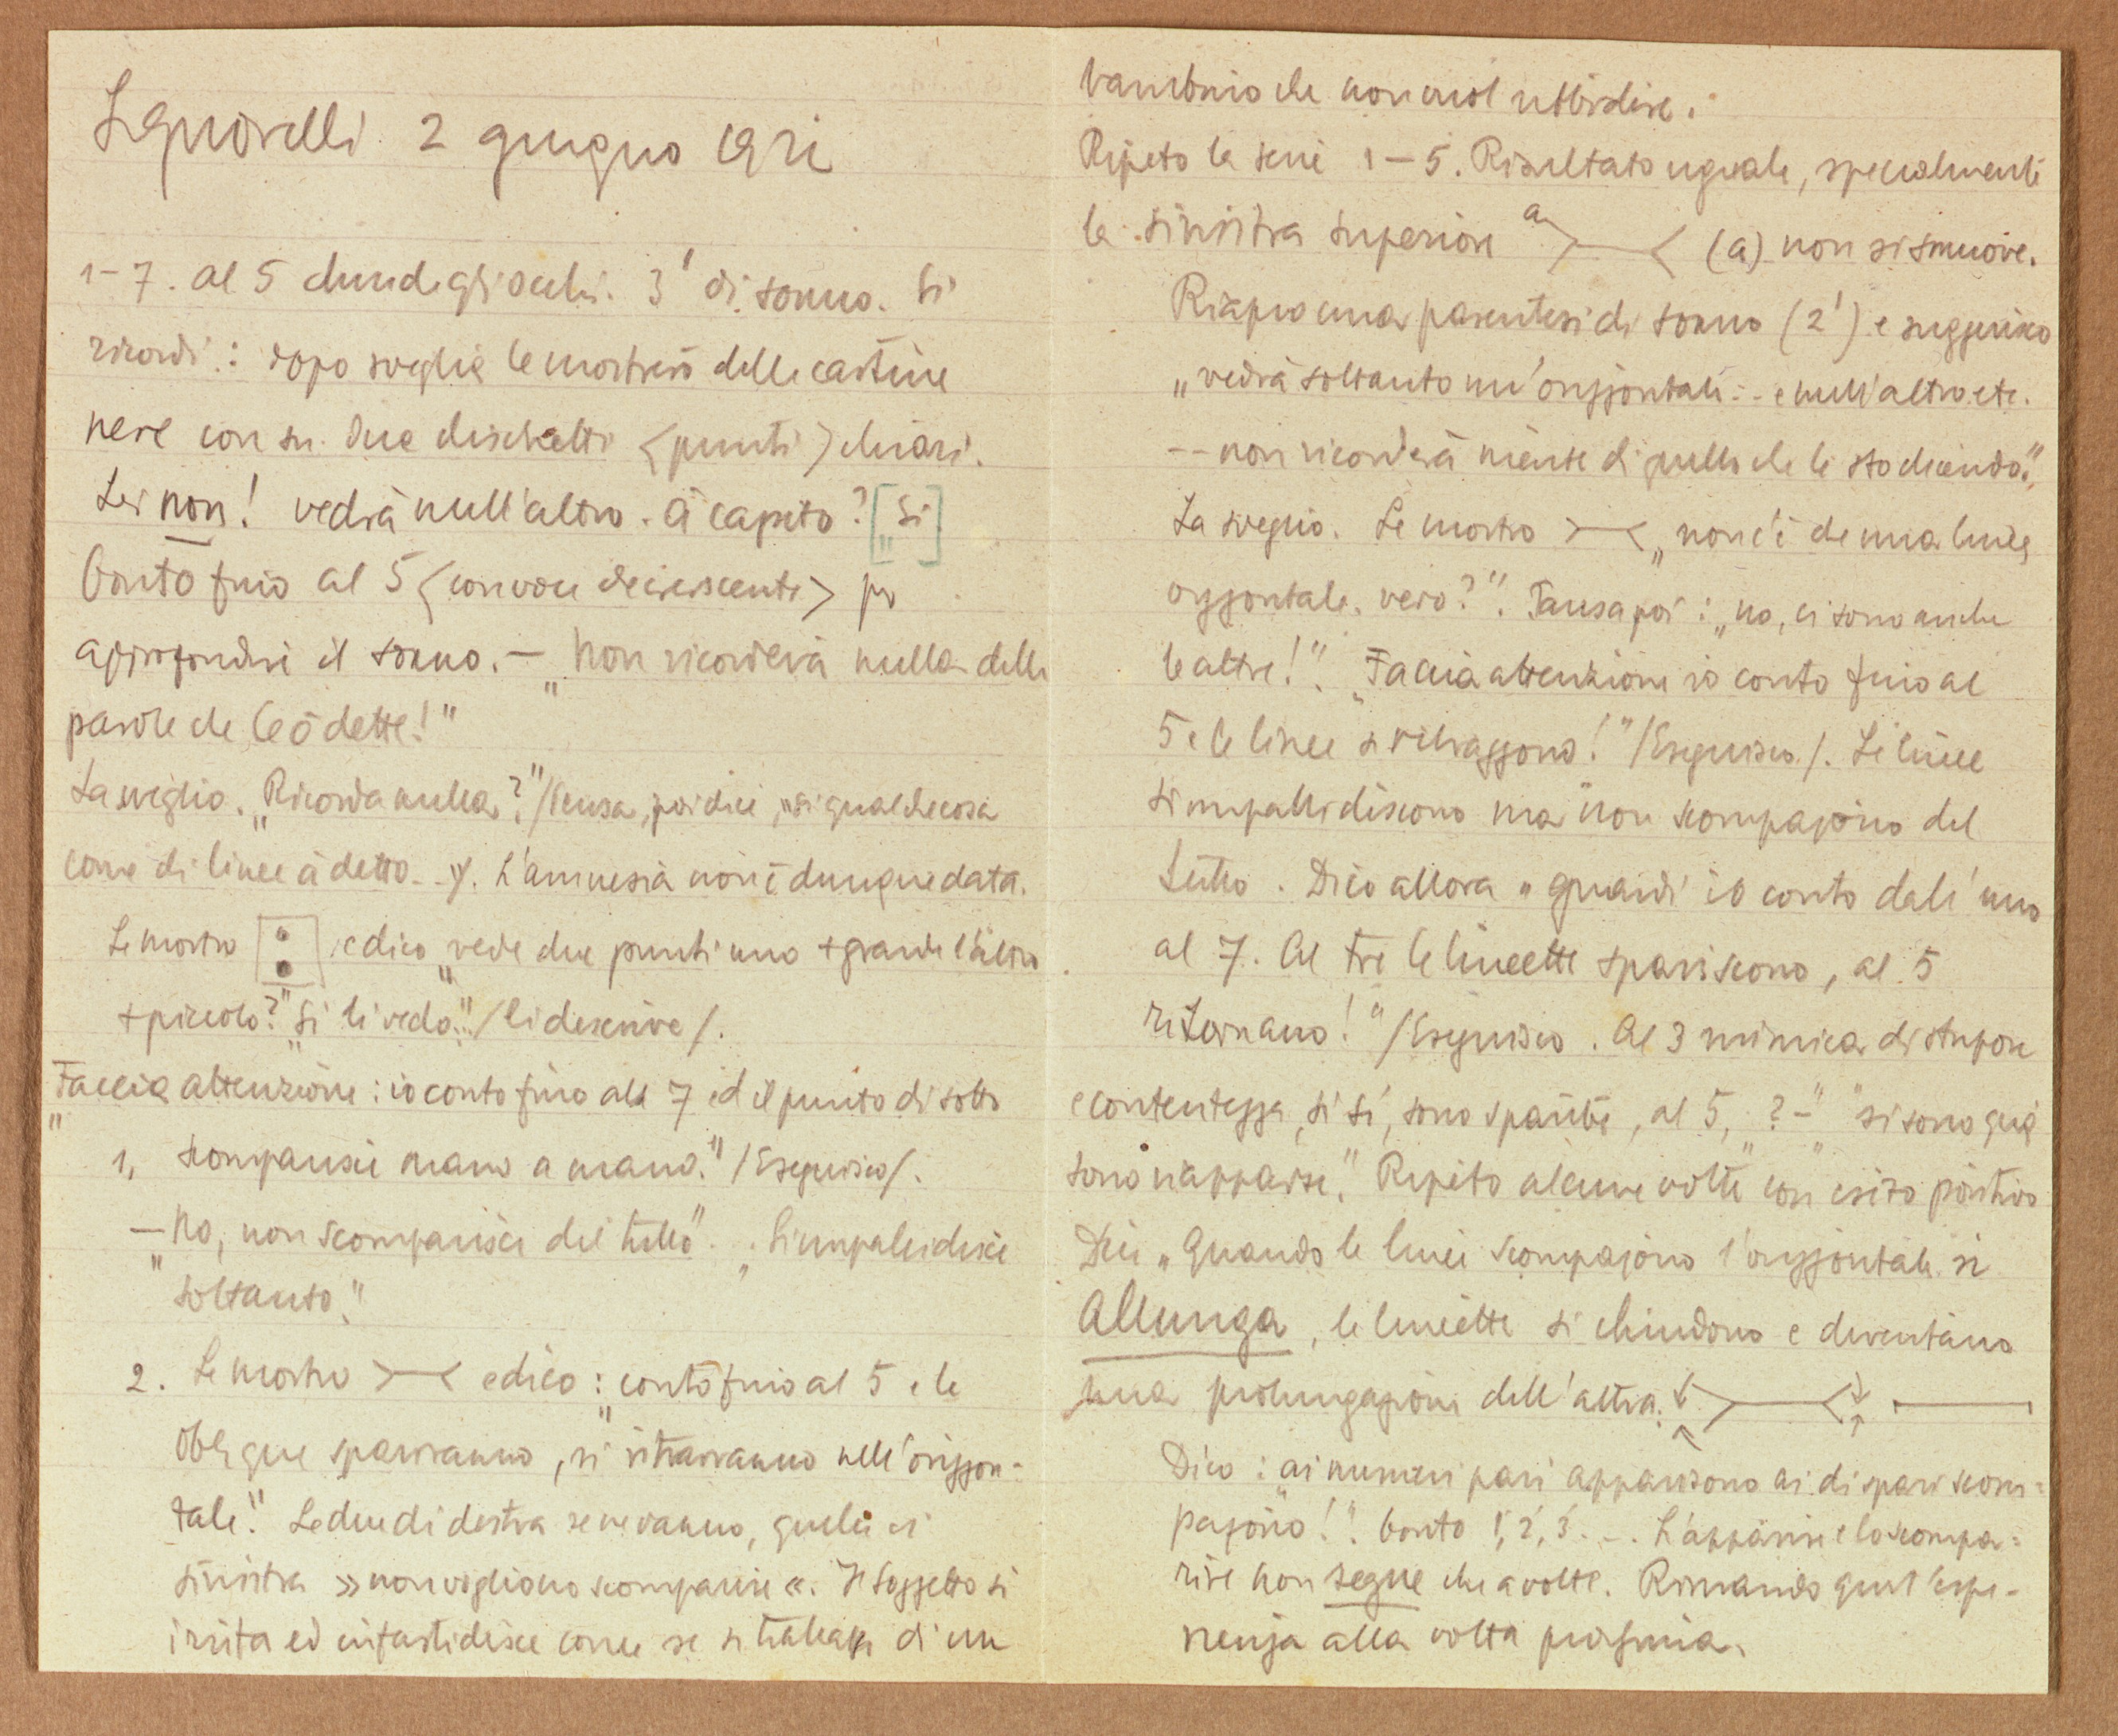 Signorelli 2 giugno 1921
1-7. al 5 chiude gli occhi. 3' di sonno. Si
ricordi: dopo sveglia le mostrerò delle cartine
nere con su due dischetti <punti> chiari.
Lei non! vedrà null'altro. À capito? ["Si]
Conto fino al 5 <con voce decrescente> per
approfondire il sonno. — "Non ricorderà nulla delle
parole che le ò dette!"
La sveglio. "Ricorda nulla?" /Pensa, poi dice, "si qualche cosa
come di linee à detto--"/. L'amnesia non è dunque data.
Le mostro : e dico "vede due punti uno + grande l'altro
+ piccolo?" "Si li vedo." /li descrive/.
"Faccia attenzione: io conto fino al 7 ed il punto di sotto
1, scomparisce mano a mano." /Eseguisco/.
—"No, non scomparisce del tutto". "Si impallidisce
soltanto."
2. Le mostro >—< e dico: "conto fino al 5 e le
oblique spariranno, si ritrarranno nell'orizzon-
tale." Le due di destra se ne vanno, quelle di
sinistra »non vogliono scomparire«. Il soggetto si
irrita ed infastidisce come se si trattasse di un
bambino che non vuol ubbidire.
Ripeto la serie 1—5. Risultato uguale, specialmente
la sinistra superiore a >—< (a) non si smuove.
Riapro una parentesi di sonno (2') e suggerisco
"vedrà soltanto un'orizzontale -- e null'altro etc.
-- non ricorderà niente di quello che le sto dicendo."
La sveglio. Le mostro >—< "non c'è che una linea
orizzontale, vero?". Pausa poi: "no, ci sono anche
le altre!". "Faccia attenzione io conto fino al
5 e le linee si ritraggono!" /Eseguisco/. Le linee
si impallidiscono ma non scompajono del
tutto. Dico allora "guardi io conto dall'uno
al 7. Al tre le lineette spariscono, al 5
ritornano!" /Eseguisco. Al 3 mimica di stupore
e contentezza, si si, sono sparite, al 5, "?-" "si sono qua
sono riapparse." Ripeto alcune volte con esito positivo
Dice "Quando le linee scompajono l'orizzontale si
allunga, le lineette si chiudono e diventano
una prolungazione dell'altra. >—< —
Dico: "ai numeri pari appariscono ai dispari scom-
pajono!". Conto 1, 2, 3 --. L'apparire e lo scompa-
rire non segue che a volte. Rimando quest'espe-
rienza alla volta prossima.